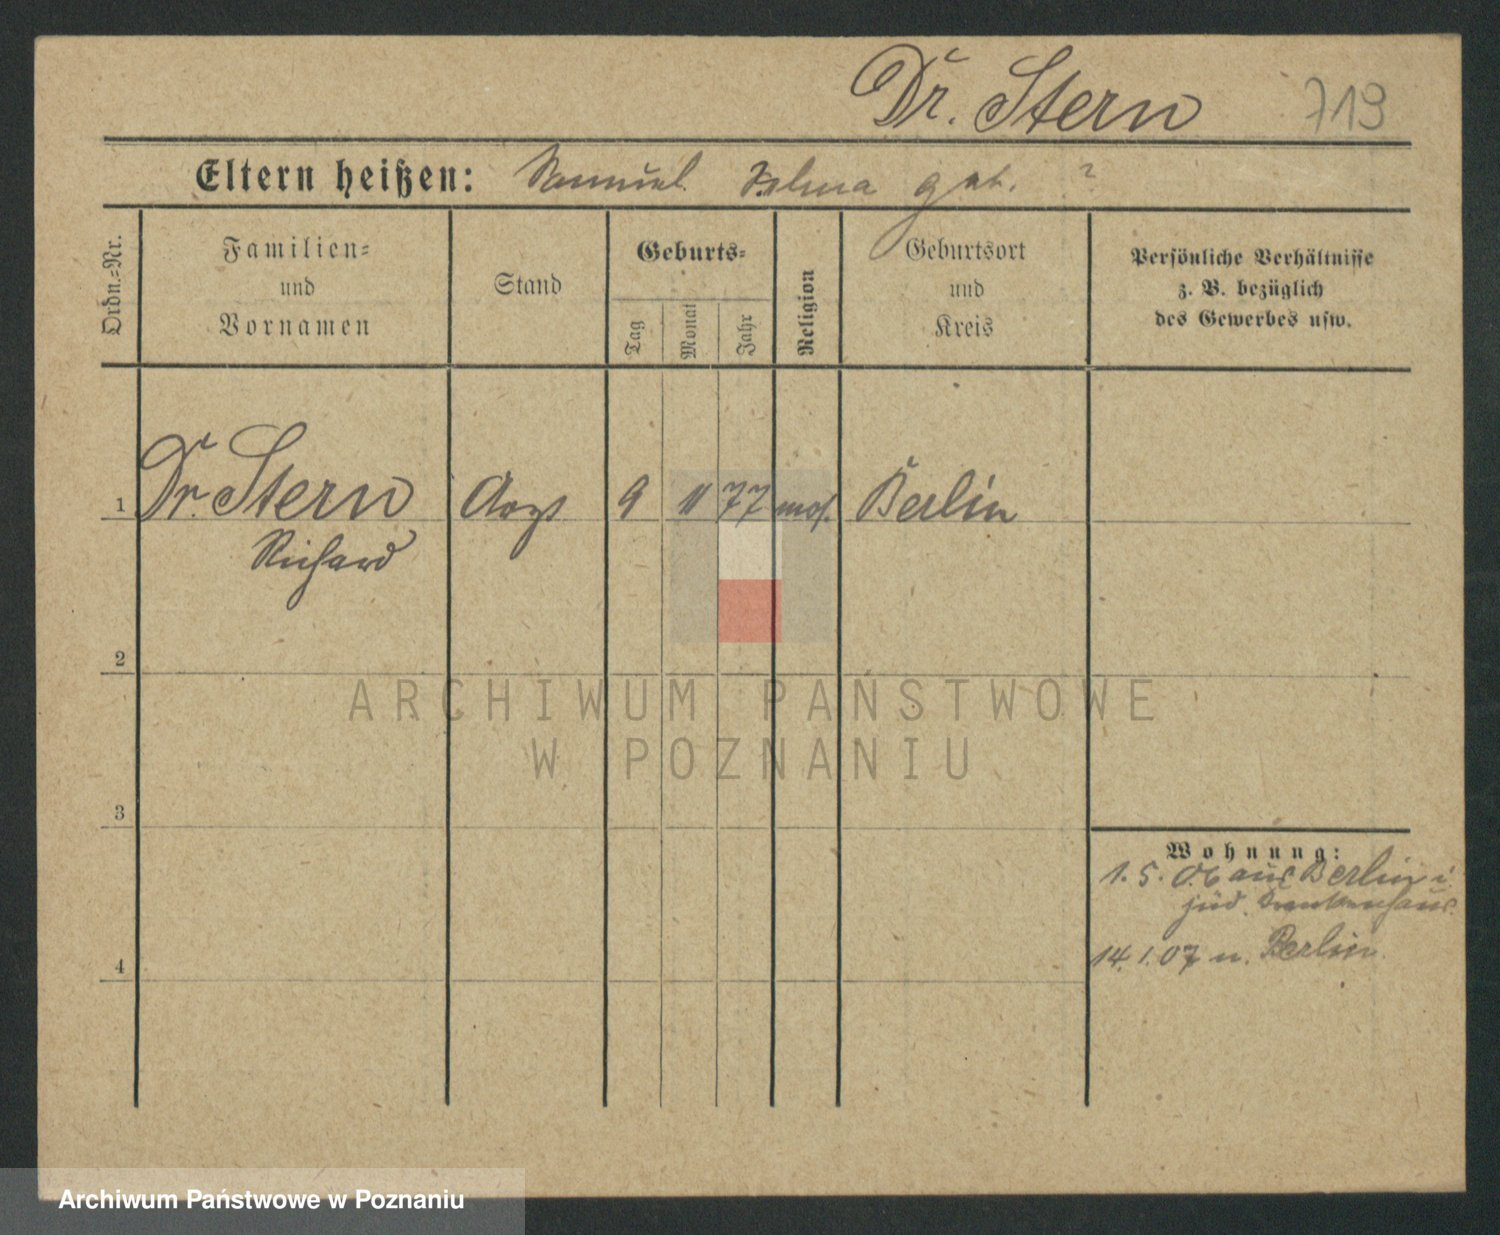 Dr. Stern 719
Eltern heißen: Samuel Selma geb. ?
Ordn.-Nr.
Familien-
und
Vornamen
Stand
Geburts-
Tag
Monat
Jahr
Religion
Geburtsort
und
Kreis
Persönliche Verhältnisse
z. B. bezüglich
des Gewerbes usw.
1 Dr. Stern Arzt 9 11 77 mos. Berlin
Richard
2
ARCHIWUM PAŃSTWOWE
W POZNANIU
3
Wohnung:
1.5.06 aus Berlin i.
jüd. Krankenhaus.
4 14.1.07 n. Berlin.
Archiwum Państwowe w Poznaniu